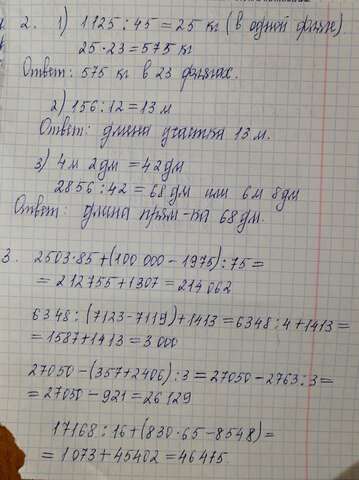 2. 1) 1125 : 45 = 25 кг (в одной фляге)
25 · 23 = 575 кг
Ответ: 575 кг в 23 флягах.
2) 156 : 12 = 13 м
Ответ: длина участка 13 м.
3) 4м 2дм = 42дм
2856 : 42 = 68 дм или 6м 8дм
Ответ: длина прям-ка 68 дм.
3. 2503 · 85 + (100 000 - 1975) : 75 =
= 212755 + 1307 = 214 062
6348 : (7123 - 7119) + 1413 = 6348 : 4 + 1413 =
= 1587 + 1413 = 3 000
27050 - (357 + 2406) : 3 = 27050 - 2763 : 3 =
= 27050 - 921 = 26 129
17168 : 16 + (830 · 65 - 8548) =
= 1 073 + 45402 = 46 475.